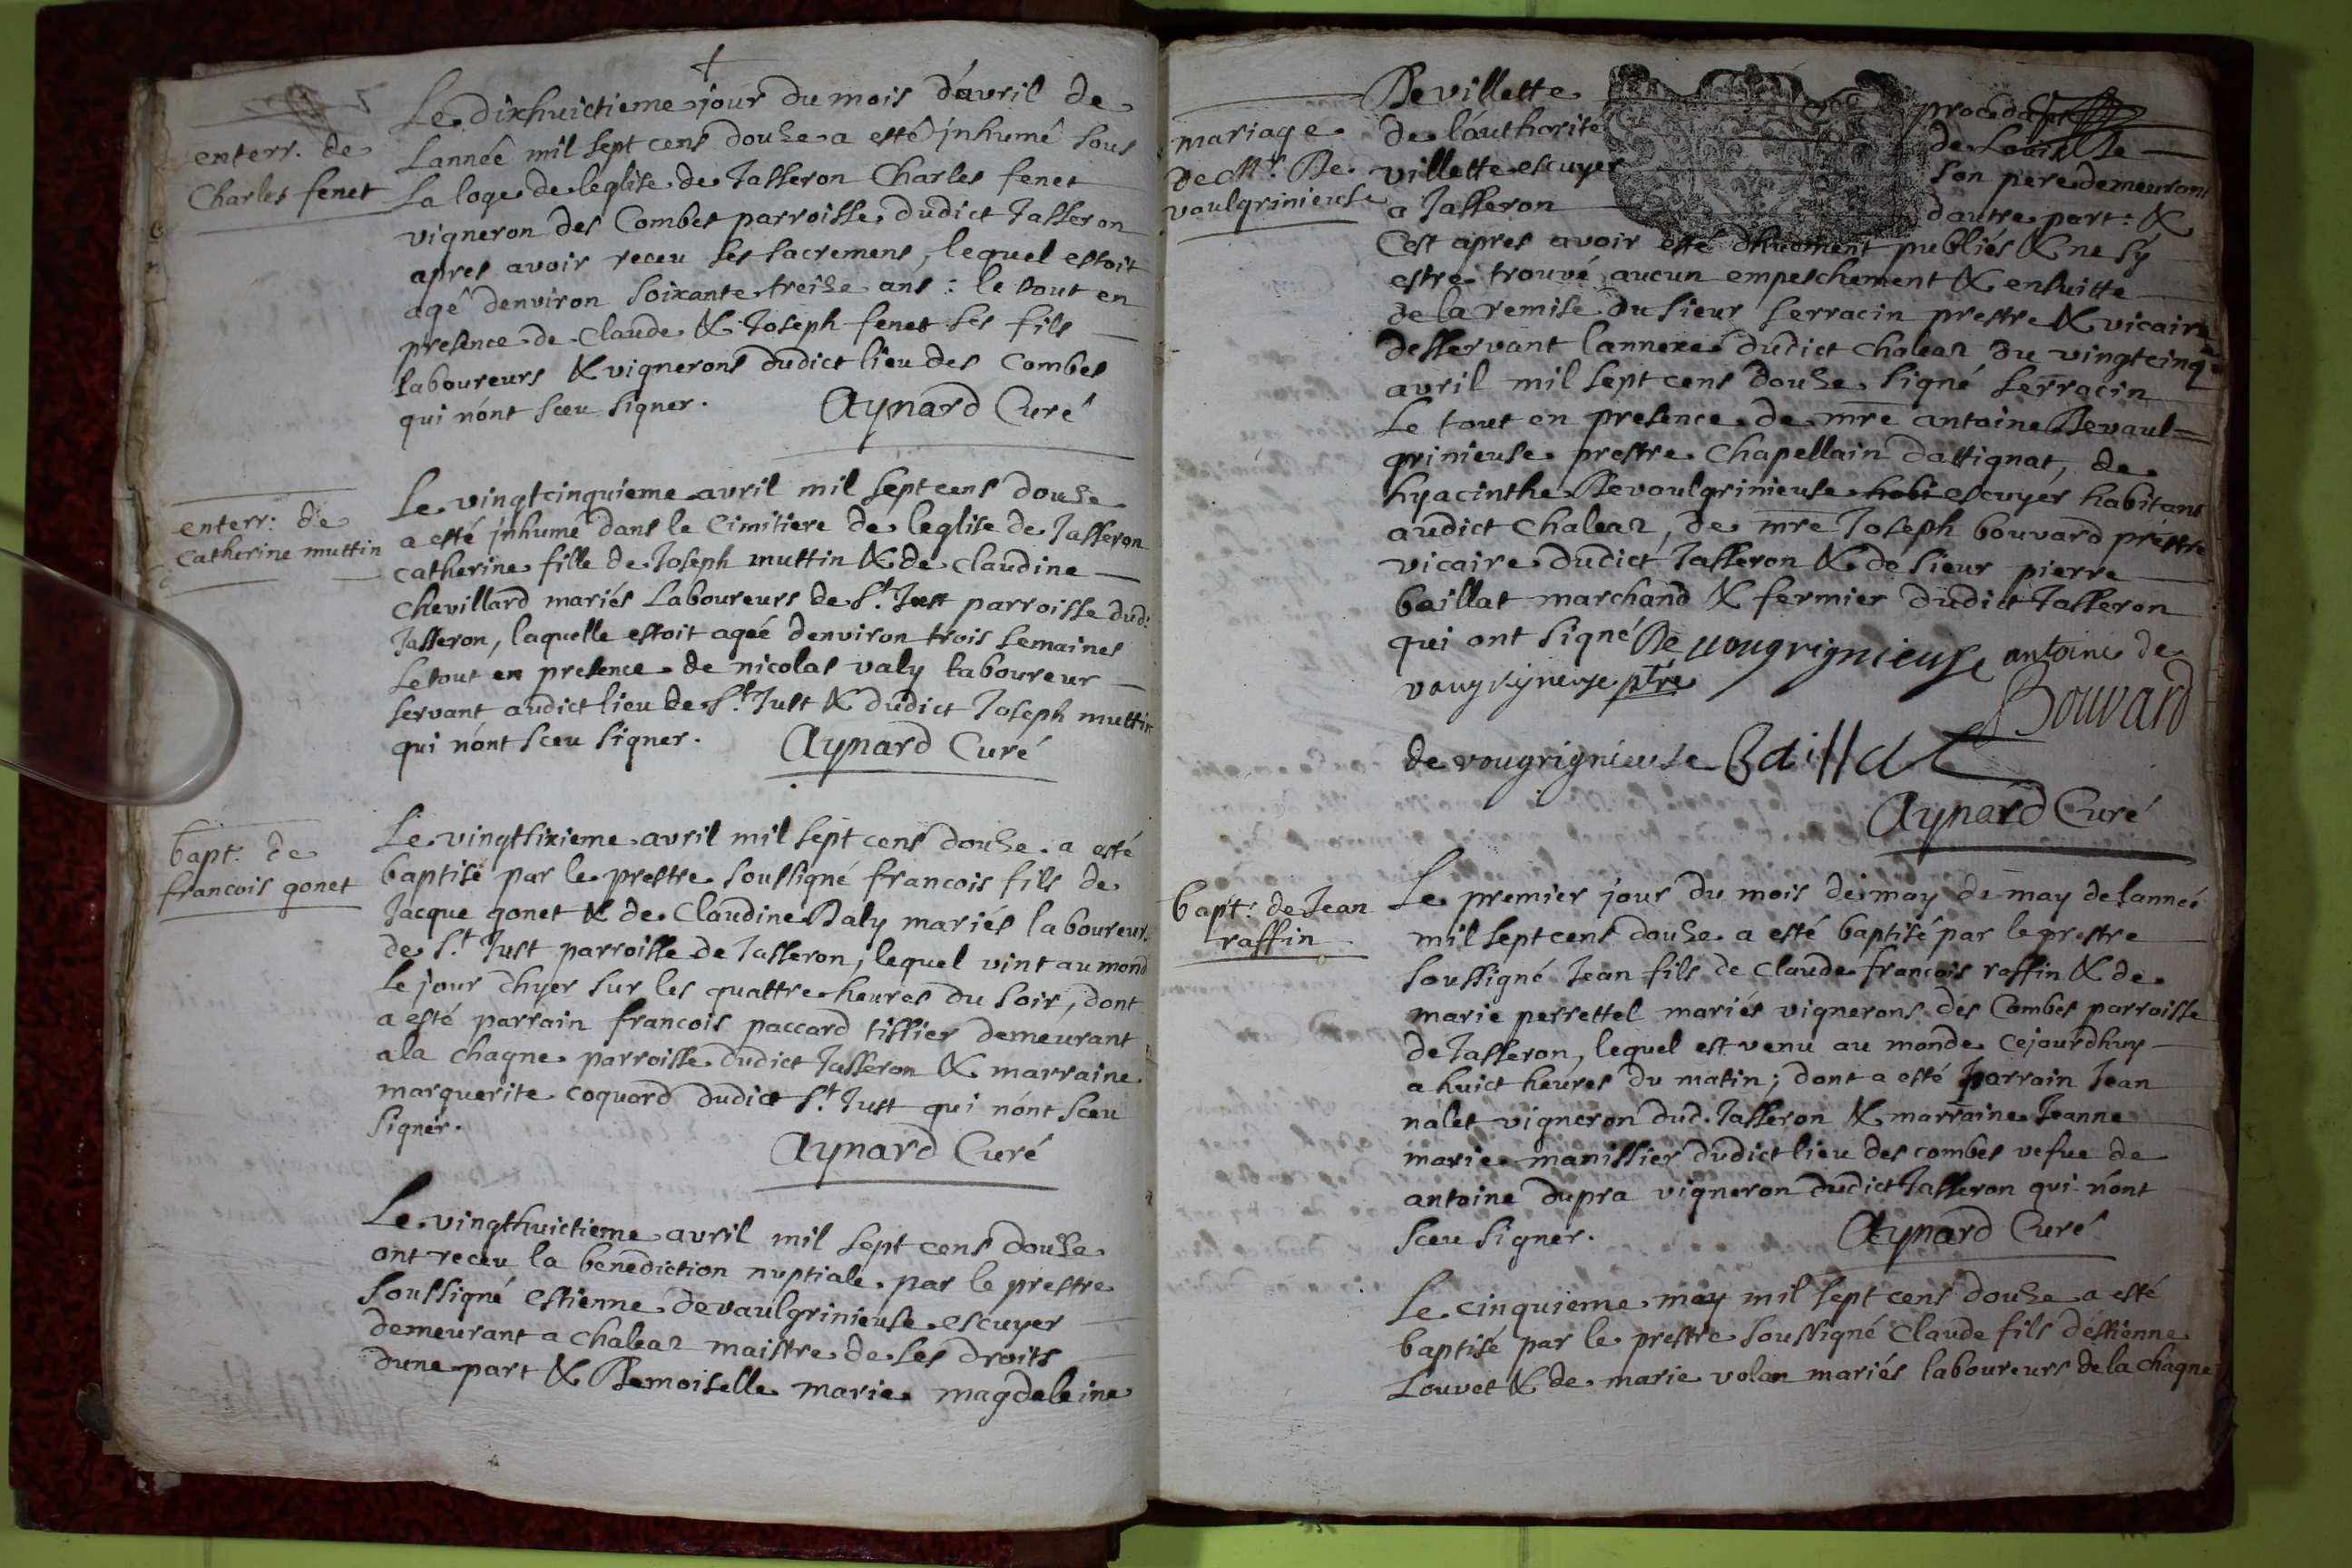 enterr. de
Charles fenet
Le dixhuictieme jour du mois d'avril de
Lannée mil sept cens douze a esté inhumé sous
La loge de leglise de Jasseron Charles fenet
vigneron des Combes parroisse dudict Jasseron
apres avoir receu les sacremens, lequel estoit
agé denviron soixante treize ans : le tout en
presence de Claude & Joseph fenet ses fils
laboureurs & vignerons dudict lieu des Combes
qui nont sceu signer. Aynard Curé
enterr: de
catherine muttin
Le vingtcinquieme avril mil sept cens douze
a esté inhumé dans le Cimitiere de leglise de Jasseron
catherine fille de Joseph muttin & de claudine
chevillard mariés Laboureurs de St. Just parroisse dud:
Jasseron, laquelle estoit agée denviron trois semaines
Le tout en presence de nicolas valy laboureur
servant audict lieu de St. Just & dudict Joseph muttin
qui nont sceu signer. Aynard Curé
bapt: de
francois gonet
Le vingtsixieme avril mil sept cens douze a esté
baptisé par le prestre soussigné francois fils de
Jacque gonet & de Claudine Baly mariés laboureur.
de St. Just parroisse de Jasseron, lequel vint au mond
le jour dhyer sur les quattre heures du soir, dont
a esté parrain francois paccard tissier demeurant
ala chagne parroisse dudict Jasseron & marraine
marguerite coquard dudict St. Just qui nont sceu
signer.
Aynard Curé
Le vingthuictieme avril mil sept cens douze
ont receu la benediction nuptiale par le prestre
soussigné estienne devaulgrinieuse escuyer
demeurant a chaleaz maistre de ses droits
dune part & Demoiselle marie magdeleine
mariage
de Mr. De
vaulgrinieuse
De villette procedant
de l'authorité de Louis De
villette escuyer son pere demeurant
a Jasseron dautre part: &
Cest apres avoir esté dhuement publiés & ne sy
estre trouvé aucun empeschement & ensuitte
de la remise du sieur serracin prestre & vicaire
desservant lannexe dudict chaleaz du vingtcinq
avril mil sept cens douze signé serracin
Le tout en presence de mre antoine Devaul=
grinieuse prestre Chapellain dattignat, de
hyacinthe Devaulgrinieuse habi escuyer habitant
audict chaleaz, de mre Joseph bouvard prestre
vicaire dudict Jasseron & de sieur pierre
baillat marchand & fermier dudict Jasseron
qui ont signé De vougrignieuse antoine de
vougrigneuse ptre Bouvard
de vougrignieuse Baillat
Aynard Curé
bapt: de Jean
raffin
Le premier jour du mois de may de may de lannée
mil sept cens douze a esté baptisé par le prestre
soussigné Jean fils de Claude francois raffin & de
marie perrettel mariés vignerons des Combes parroisse
de Jasseron, lequel est venu au monde cejourdhuy
a huict heures du matin; dont a esté parrain Jean
nalet vigneron dud. Jasseron & marraine Jeanne
marie manissier dudict lieu des combes vefue de
antoine dupra vigneron dudict Jasseron qui nont
sceu signer. Aynard Curé
Le cinquieme may mil sept cens douze a esté
baptisé par le prestre soussigné Claude fils déstienne
Louvet & de marie volan mariés laboureurs de la chagne